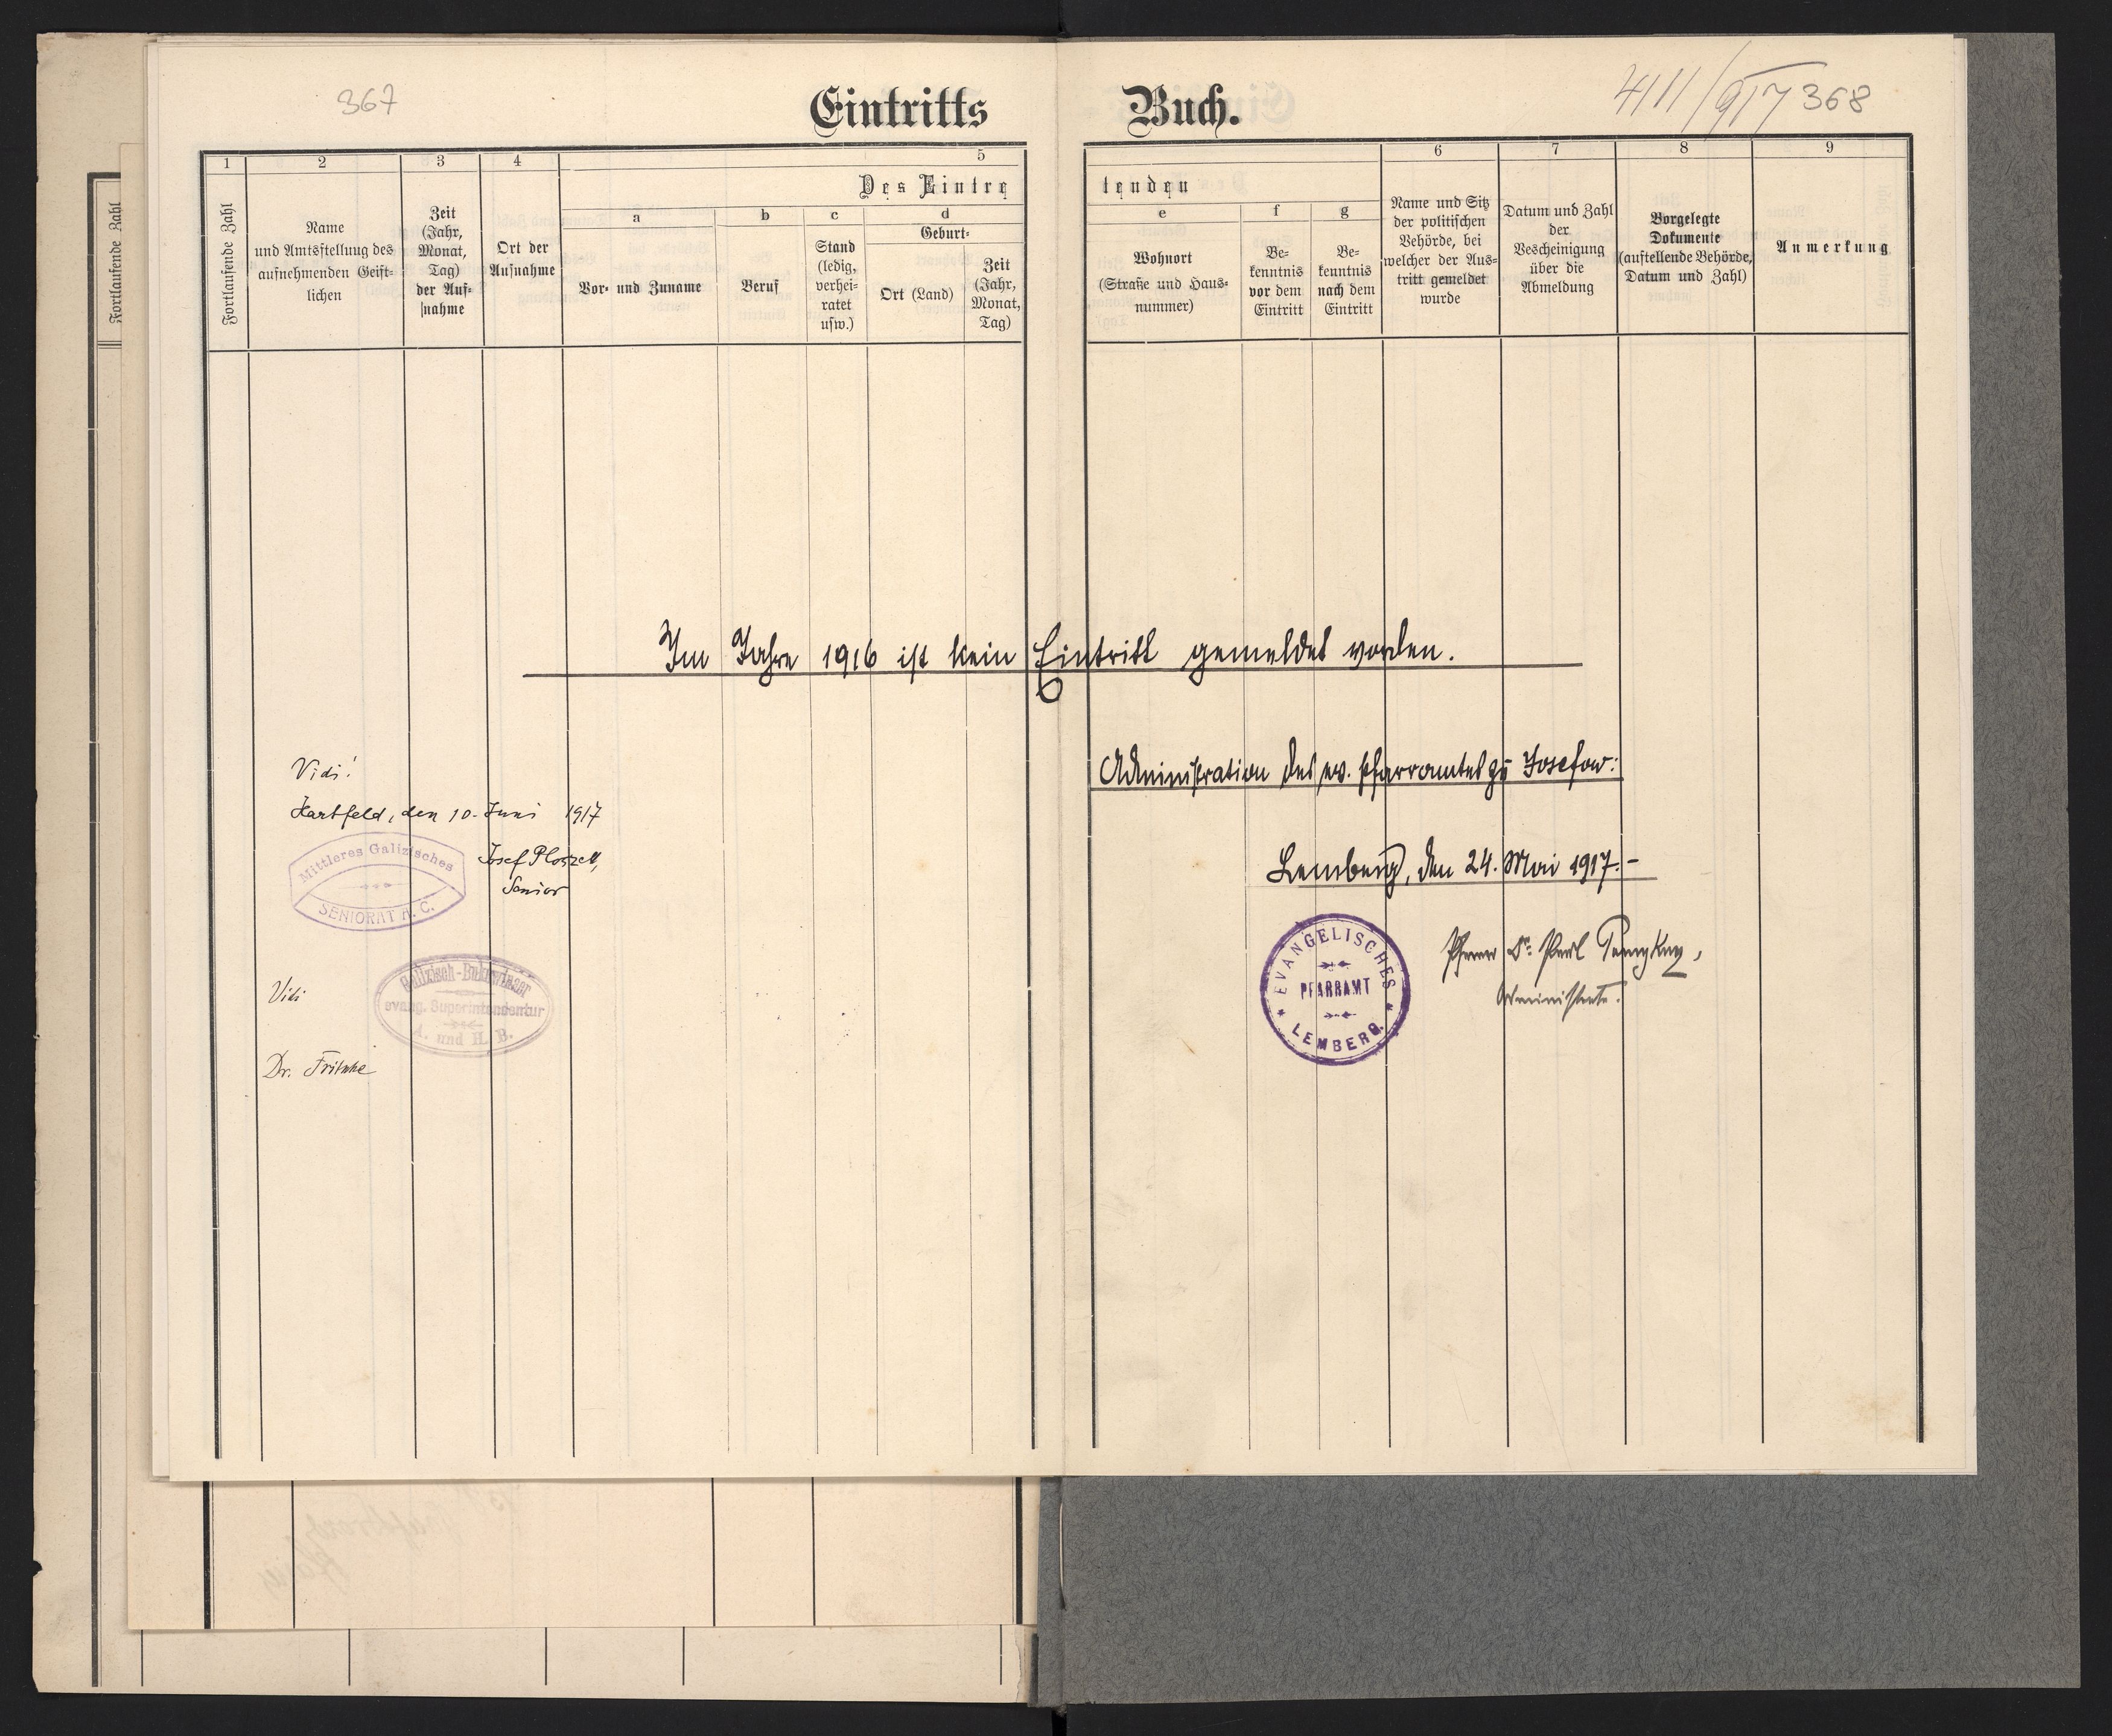 367
Eintritts Buch.
411/917 368
1 2 3 4 5 6 7 8 9
Fortlaufende Zahl
Fortlaufende Zahl
Name
und Amtsstellung des
aufnehmenden Geist-
lichen
Zeit
(Jahr,
Monat,
Tag)
der Auf-
nahme
Ort der
Aufnahme
Des Eintre
tenden
a
Vor- und Zuname
b
Beruf
c
Stand
(ledig,
verhei-
ratet
usw.)
d
Geburt-
Ort (Land)
Zeit
(Jahr,
Monat,
Tag)
e
Wohnort
(Straße und Haus-
nummer)
f
Be-
kenntnis
vor dem
Eintritt
g
Be-
kenntnis
nach dem
Eintritt
Name und Sitz
der politischen
Behörde, bei
welcher der Aus-
tritt gemeldet
wurde
Datum und Zahl
der
Bescheinigung
über die
Abmeldung
Vorgelegte
Dokumente
(austellende Behörde,
Datum und Zahl)
Anmerkung
Im Jahre 1916 ist kein Eintritt gemeldet worden.
Vidi!
Hartfeld, den 10. Juni 1917
Mittleres Galizisches
SENIORAT A. C.
Josef
Senior
Vidi
Galizisch-Bukowinaer
evang. Superintendentur
A. und H. B.
Dr. Fritsche
Administration des ev. Pfarramtes zu Josefow:
Lemberg, den 24. Mai 1917.-
EVANGELISCHES
PFARRAMT
LEMBERG.
Pfarrer Dr. Paul
Administrator.